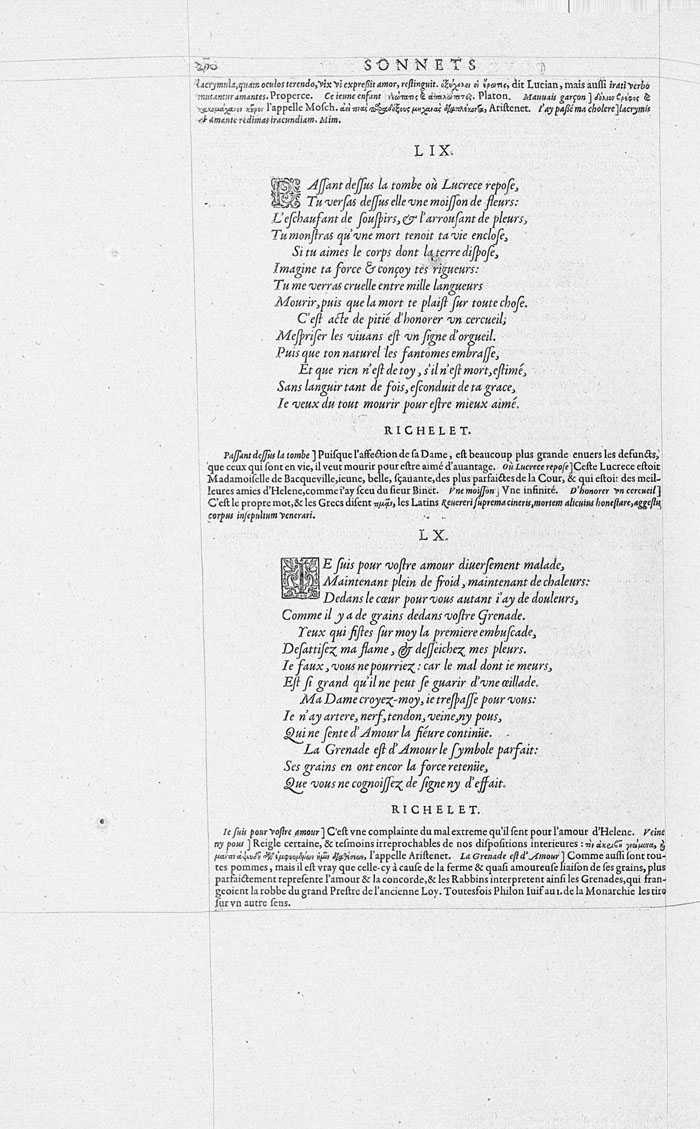 SONNETS
lacrymula, quam oculos terendo, vix vi expreßit amor, restinguit. dit Lucian, mais aussi irati verbo
mutantur amantes. Properce. Ce ieune enfant Platon. Mauuais garçon ]
l'appelle Mosch. Aristenet. I'ay paßé ma cholere ] lacrymis
et amante redimas iracundiam. Mim.
LIX.
PAssant dessus la tombe où Lucrece repose,
Tu versas dessus elle vne moisson de fleurs:
L'eschaufant de souspirs, & l'arrousant de pleurs,
Tu monstras qu'vne mort tenoit ta vie enclose,
Si tu aimes le corps dont la terre dispose,
Imagine ta force & conçoy tes rigueurs:
Tu me verras cruelle entre mille langueurs
Mourir, puis que la mort te plaist sur toute chose.
C'est acte de pitié d'honorer vn cercueil;
Mespriser les viuans est vn signe d'orgueil.
Puis que ton naturel les fantomes embrasse,
Et que rien n'est de toy, s'il n'est mort, estimé,
Sans languir tant de fois, esconduit de ta grace,
Ie veux du tout mourir pour estre mieux aimé.
RICHELET.
Passant dessus la tombe ] Puisque l'affection de sa Dame, est beaucoup plus grande enuers les defuncts,
que ceux qui sont en vie, il veut mourir pour estre aimé d'auantage. Où Lucrece repose ] Ceste Lucrece estoit
Madamoiselle de Bacqueville, ieune, belle, sçauante, des plus parfaictes de la Cour, & qui estoit des meil-
leures amies d'Helene, comme i'ay sceu du sieur Binet. Vne moisson ] Vne infinité. D'honorer vn cercueil ]
C'est le propre mot, & les Grecs disent les Latins Reuereri suprema cineris, mortem alicuius honestare, aggestu
corpus insepultum venerari.
LX.
IE suis pour vostre amour diuersement malade,
Maintenant plein de froid, maintenant de chaleurs:
Dedans le cœur pour vous autant i'ay de douleurs,
Comme il y a de grains dedans vostre Grenade.
Yeux qui fistes sur moy la premiere embuscade,
Desattisez ma flame, & desseichez mes pleurs.
Ie faux, vous ne pourriez: car le mal dont ie meurs,
Est si grand qu'il ne peut se guarir d'vne œillade.
Ma Dame croyez-moy, ie trespasse pour vous:
Ie n'ay artere, nerf, tendon, veine, ny pous,
Qui ne sente d'Amour la fiéure continüe.
La Grenade est d'Amour le symbole parfait:
Ses grains en ont encor la force retenüe,
Que vous ne cognoissez de signe ny d'effait.
RICHELET.
Ie suis pour vostre amour ] C'est vne complainte du mal extreme qu'il sent pour l'amour d'Helene. Veine
ny pous ] Reigle certaine, & tesmoins irreprochables de nos dispositions interieures :
l'appelle Aristenet. La Grenade est d'Amour ] Comme aussi sont tou-
tes pommes, mais il est vray que celle-cy à cause de la ferme & quasi amoureuse liaison de ses grains, plus
parfaictement represente l'amour & la concorde, & les Rabbins interpretent ainsi les Grenades, qui fran-
geoient la robbe du grand Prestre de l'ancienne Loy. Toutesfois Philon Iuif au 1. de la Monarchie les tire
sur vn autre sens.